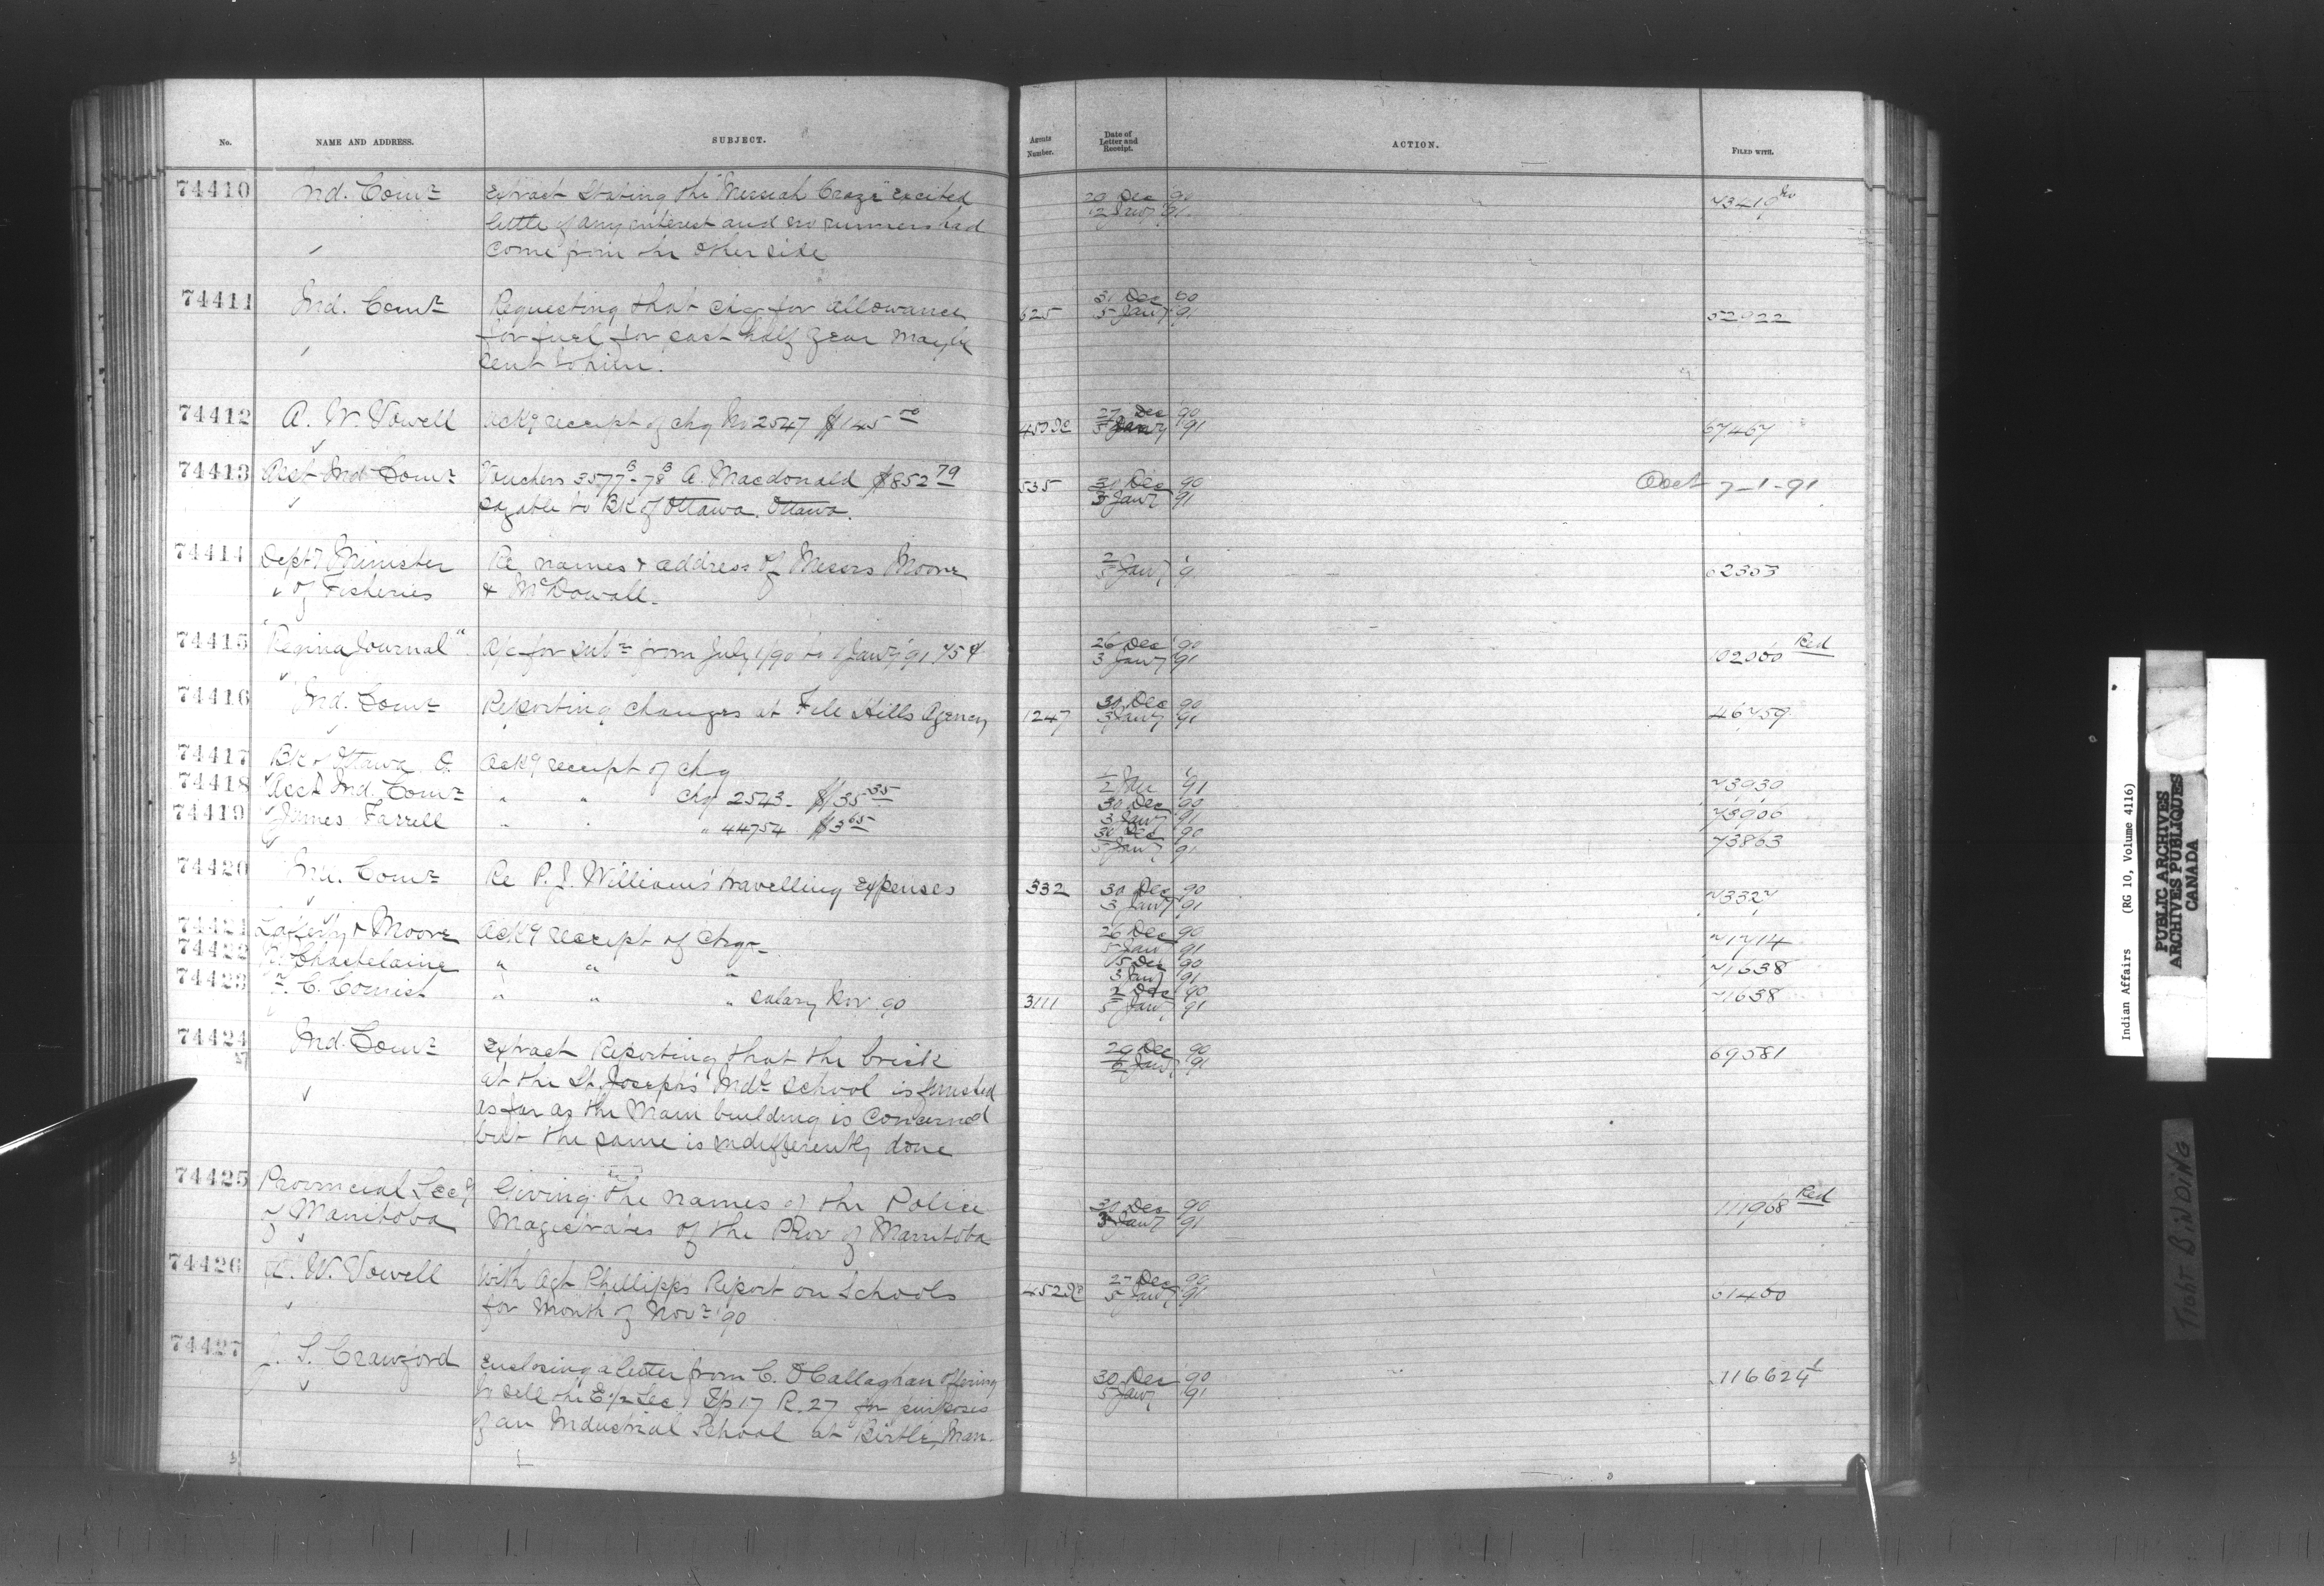 No. NAME AND ADDRESS. SUBJECT. Agents Number. Date of Letter and Receipt. ACTION. FILED WITH.
74410 Ind. Comr Extract stating the "Messiah Craze" excited 29 Dec 90
little if any interest and no runners had 2 Jany 91
come from the other side
74411 Ind. Comr Requesting that chq for allowance 625 31 Dec 90
for fuel for past half year may be 5 Jany 91 52022
sent to him.
74412 A. W. Vowell Ackg receipt of chq No 2547 $145 00 27 Dec 90
5 Jany 91 67467
74413 Asst Ind Comr Vouchers 3577B-78B A. Macdonald $852 79 535 30 Dec 90 Acct 7-1-91
payable to Bk of Ottawa. Ottawa. 3 Jany 91
74414 Depty Minister Re names & address of Messrs Moore 2 Jany
of Fisheries & McDowall. 5 62353
74415 "Regina Journal" A/c for subn from July 1/90 to 1 Jany '91 75¢ 26 Dec 90
3 Jany 91 102000 Red
74416 Ind. Comr Reporting changes at File Hills Agency 1247 30 Dec 90
3 Jany 91 46759
74417 Bk of Ottawa O. Ackg receipt of chq 1 Jan '91
2 73030
74418 Asst Ind. Comr " " chq 2543. $135 35 30 Dec 90
3 Jany 91 73906
74419 James Farrell " " " 44754 $3 65 30 Dec 90
5 Jany 91 73863
74420 Ind. Comr Re P. J. Williams' travelling expenses 532 30 Dec 90
3 Jany 91 73327
74421 Lafferty & Moore Ackg receipt of chqs 26 Dec 90
5 Jany 91 71714
74422 Chastelaine " " " 15 Dec 90
3 Jany 91 71638
74423 F. C. Cornish " " " salary Nov. 90 3111 2 Dec 90
5 Jany 91 71638
74424 Ind. Comr Extract Reporting that the brick 29 Dec 90 69581
at the St. Joseph's Indl School is finished Jany 91
as far as the Main building is concerned
but the same is indifferently done
74425 Provincial Secy Giving the names of the Police 30 Dec 90 111968 Red
of Manitoba Magistrates of the Prov of Manitoba 3 Jany 91
74426 A. W. Vowell With Agt Phillipps Report on Schools 27 Dec 90
for Month of Novr '90 5 Jany 91 61400
74427 S. Crawford Enclosing a letter from C. O'Callaghan offering 30 Dec 90 116624
to sell the E 1/2 Sec 1 Tp 17 R. 27 for purposes 5 Jany 91
of an Industrial School at Birtle, Man.
Indian Affairs (RG 10, Volume 4116)
PUBLIC ARCHIVES
ARCHIVES PUBLIQUES
CANADA
TIGHT BINDING